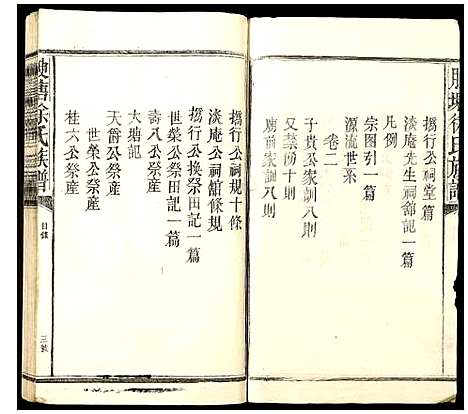 撝行公祠堂篇
淡庵先生祠舘記一篇
凡例
宗图引一篇
源流世系
卷二
子貴公家訓八則
又禁約十則
廟前家訓八則
撝行公祠規十條
淡庵公祠舘條規
撝行公換祭田記一篇
世榮公祭田記一篇
壽八公祭産
大塘記
天爵公祭産
世榮公祭産
桂六公祭産
徐氏族譜
目錄
三